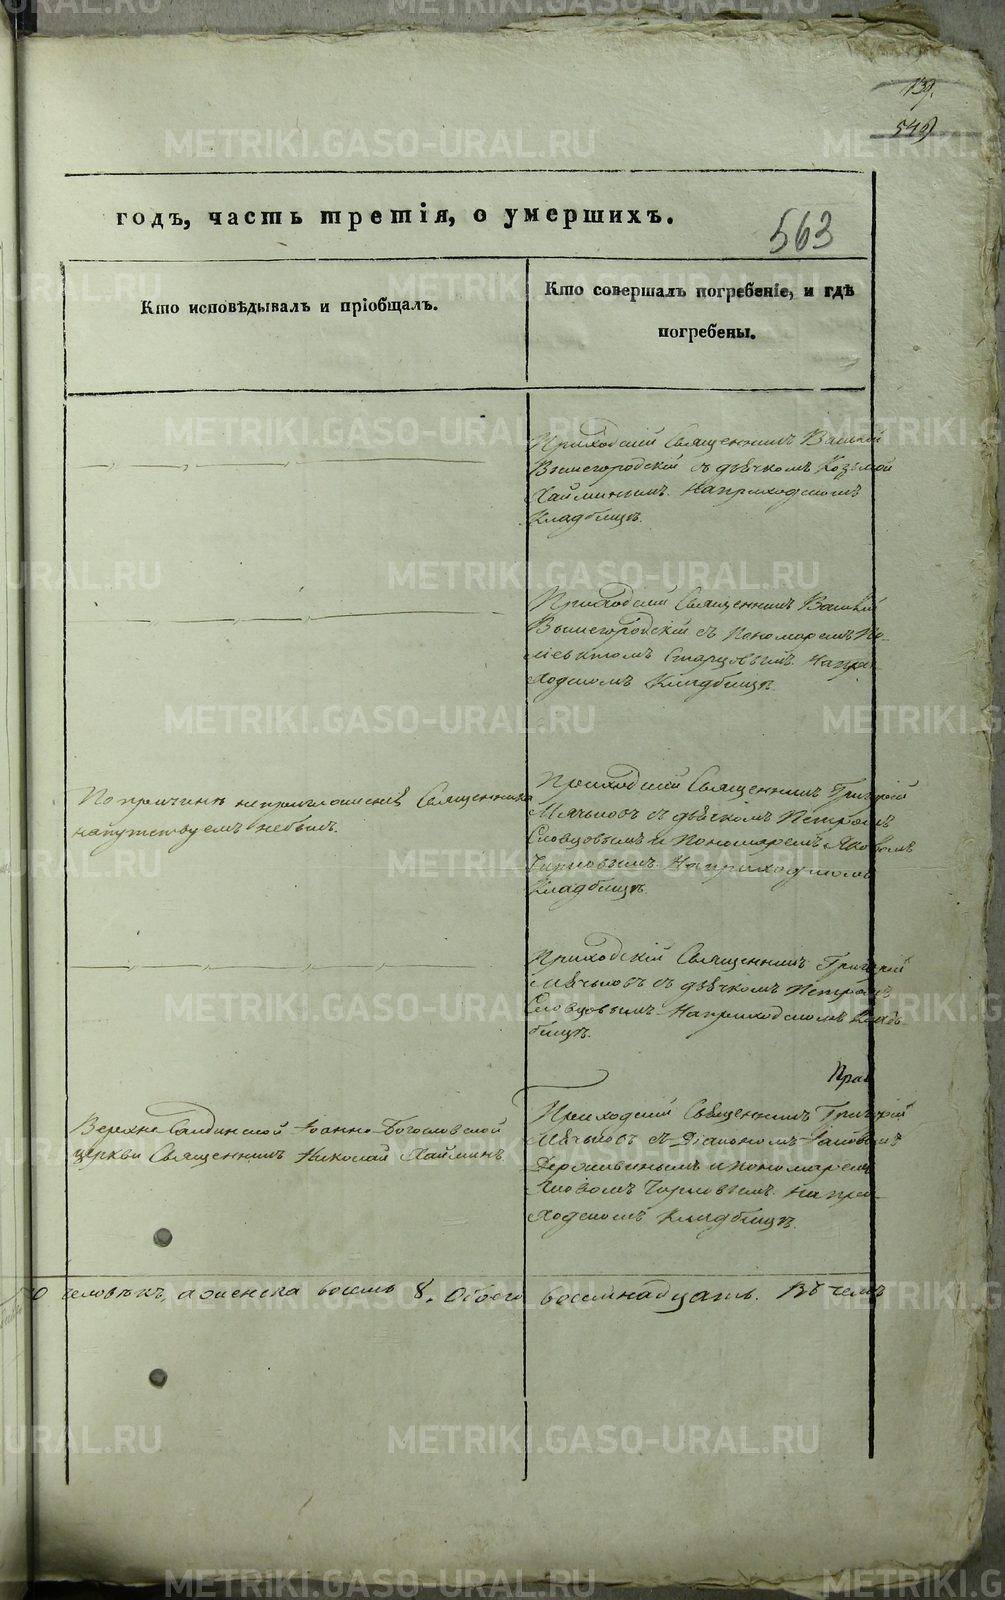 139.
549
годъ, часть третія, о умершихъ.
563
Кто исповѣдывалъ и пріобщалъ.
Кто совершалъ погребеніе, и гдѣ
погребены.
Приходскій Священникъ Василій
Вышегородскій съ дьячкомъ Козьмой
Хайминымъ. На приходскомъ
кладбищѣ.
Приходскій Священникъ Василій
Вышегородскій съ Пономаремъ По-
Старцовымъ. На при-
ходскомъ Кладбищѣ.
По причинѣ не приглашенія Священника
напутствуемъ небылъ.
Приходскій Священникъ Григорій
Мячковъ съ дьячкомъ Петромъ
Словцовымъ и Пономаремъ Яковомъ
На приходскомъ
Кладбищѣ.
Приходскій Священникъ Григорій
Мячковъ съ дьячкомъ Петромъ
Словцовымъ. На приходскомъ Клад-
бищѣ.
Верхне-Салдинской Іоанно-Богословской
церкви Священникъ Николай Хайминъ.
Приходскій Священникъ Григорій
Мячковъ съ Діакономъ
и пономаремъ
Яковомъ На при-
ходскомъ Кладбищѣ.
человѣкъ, а женска восемь 8. Обоего восемнадцать. Въ чемъ
METRIKI.GASO-URAL.RU